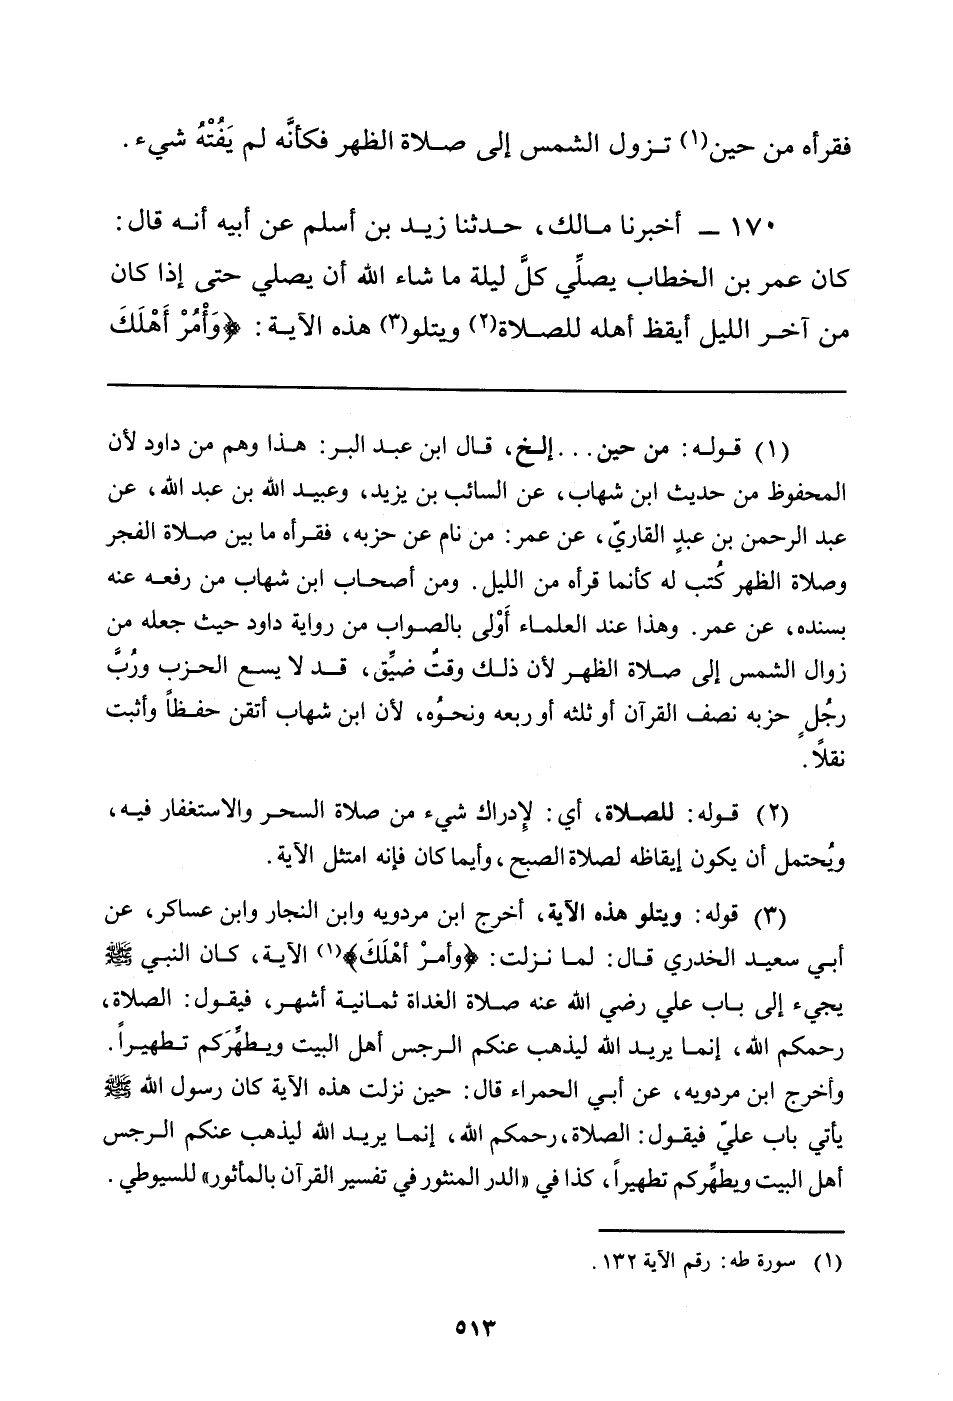 فقرأه من حين(١) تـزول الشمس إلى صـلاة الظهر فكأنَّه لم يَفُتْهُ شيء.
١٧٠ ـ أخبرنا مـالك، حـدثنا زيـد بن أسلم عن أبيه أنـه قال:
كان عمر بن الخطاب يصلِّي كلَّ ليلة ما شاء الله أن يصلي حتى إذا كان
من آخـر الليل أيقظ أهله للصـلاة(٢) ويتلو(٣) هذه الآيـة: ﴿وَأْمُرْ أَهْلَكَ
(١) قـولـه: من حين...إلـخ، قـال ابن عبـد البـر: هـذا وهم من داود لأن
المحفوظ من حديث ابن شهاب، عن السائب بن يزيد، وعبيـد الله بن عبد الله، عن
عبد الرحمن بن عبدٍ القاريّ، عن عمر: من نام عن حزبه، فقـرأه ما بين صـلاة الفجر
وصلاة الظهر كُتب له كأنما قرأه من الليل. ومن أصحـاب ابن شهاب من رفعـه عنه
بسنده، عن عمر. وهذا عند العلمـاء أَوْلى بالصـواب من رواية داود حيث جعله من
زوال الشمس إلى صـلاة الظهـر لأن ذلـك وقتٌ ضيِّق، قـد لا يسـع الحـزب ورُبَّ
رجُلٍ حزبه نصف القرآن أو ثلثه أو ربعه ونحـوُه، لأن ابن شهاب أتقن حفـظاً وأثبت
نقلاً.
(٢) قـوله: للصـلاة، أي: لإِدراك شيء من صلاة السحـر والاستغفار فيـه،
ويُحتمل أن يكون إيقاظه لصلاة الصبح، وأيما كان فإنه امتثل الآية.
(٣) قوله: ويتلو هذه الآية، أخرج ابن مردويه وابن النجار وابن عساكر، عن
أبـي سعيـد الخدري قـال: لمـا نـزلت: ﴿وأمرْ أهْلَكَ﴾(١) الآية، كـان النبـي ﷺ
يجـيء إلى بـاب علي رضي الله عنه صـلاة الغداة ثمـانية أشهـر، فيقول: الصلاة،
رحمكم الله، إنمـا يريـد الله ليذهب عنكم الـرجس أهل البيت ويـطهِّرَكم تـطهيـراً.
وأخرج ابن مردويه، عن أبـي الحمراء قال: حين نزلت هذه الآية كان رسول الله ﷺ
يأتي باب عليّ فيقول: الصلاة، رحمكم الله، إنمـا يريـد الله ليذهب عنكم الـرجس
أهل البيت ويطهِّركم تطهيراً، كذا في «الدر المنثور في تفسير القرآن بالمأثور» للسيوطي.
(١) سورة طه: رقم الآية ١٣٢.
٥١٣